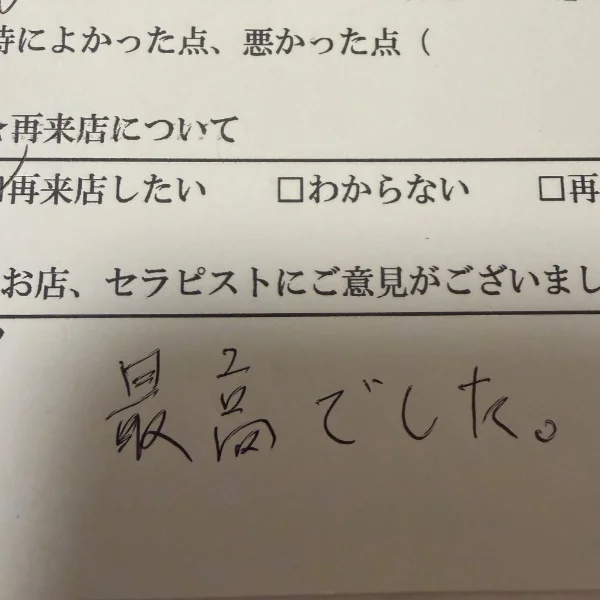 特によかった点、悪かった点（
☆再来店について
☑再来店したい　□わからない　□再
お店、セラピストにご意見がございまし
最高でした。